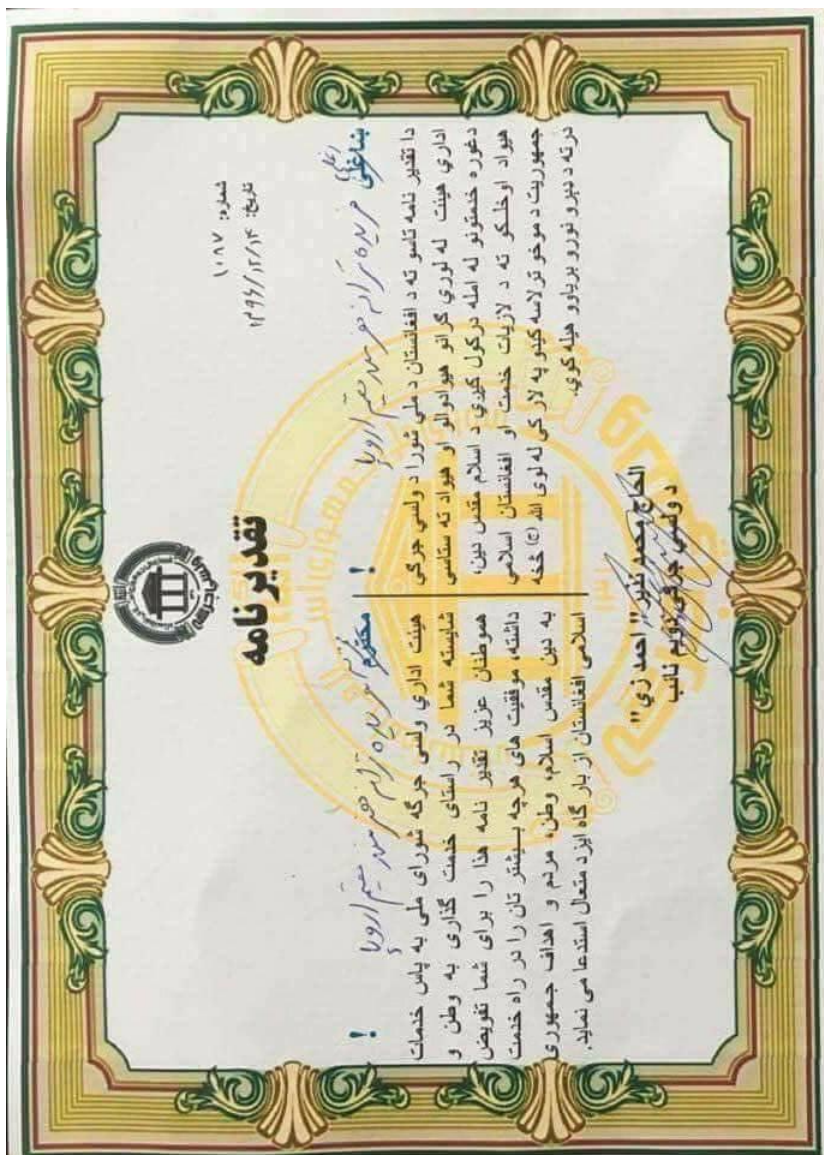 تقدیر نامه
شماره: ۱۰۸۷
تاریخ: ۱۳۹۶/۱۲/۱۴
ښاغلی فریده ترانه هنرمند مقیم اروپا !
دا تقدیر نامه تاسو ته د افغانستان د ملي شورا د ولسي جرګې
اداري هیئت له لوري ګرانو هیوادوالو او هیواد ته ستاسې
دغوره خدمتونو له امله درکول کیږي د اسلام مقدس دین،
هیواد اوخلکو ته د لازیات خدمت او افغانستان اسلامي
جمهوریت د موخو تر لاسه کېدو په لار کې له لوی الله (ج) څخه
درته د ډېرو نورو بریاوو هیله کوي.
محترم فریده ترانه هنرمند مقیم اروپا !
هیئت اداری ولسی جرگه شورای ملی به پاس خدمات
شایسته شما در راستای خدمت گذاری به وطن و
هموطنان عزیز تقدیر نامه هذا را برای شما تفویض
داشته، موفقیت های هرچه بیشتر تان را در راه خدمت
به دین مقدس اسلام، وطن، مردم و اهداف جمهوری
اسلامی افغانستان از بار گاه ایزد متعال استدعا می نماید.
الحاج محمد نذیر "احمد زی"
د ولسي جرګې دویم نائب